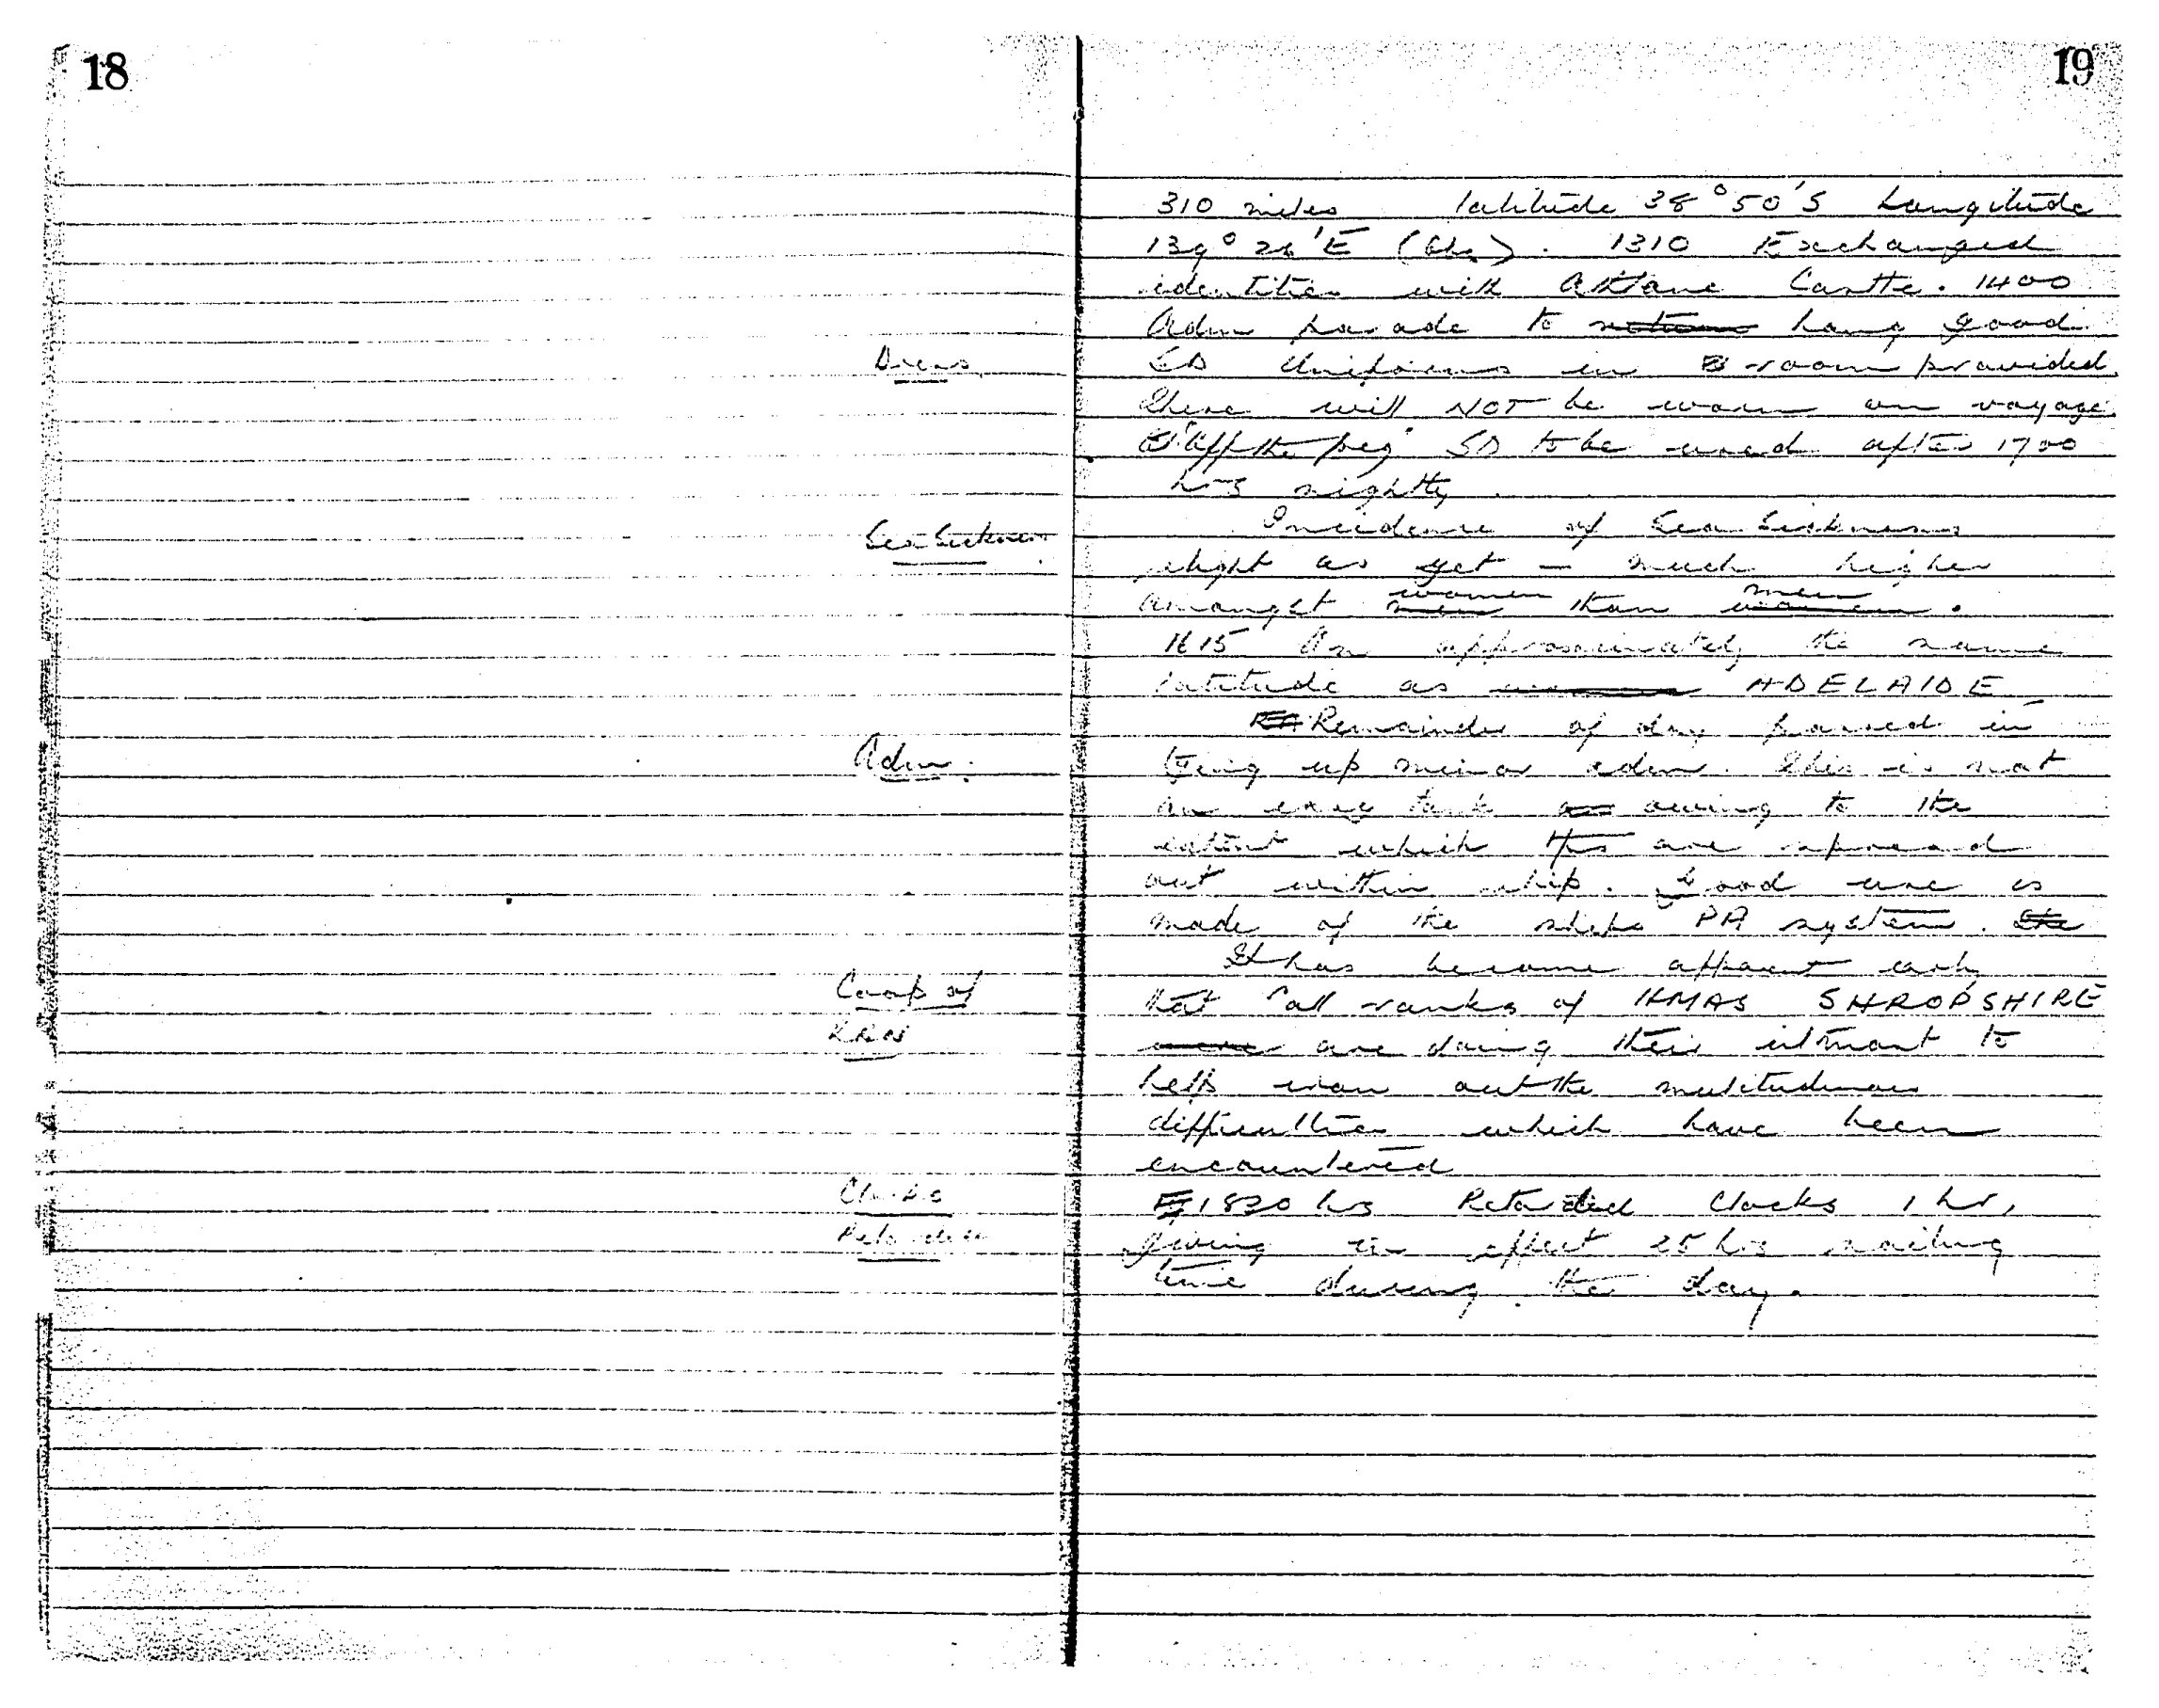 18
19
310 miles latitude 38° 50' S Longitude
139° 26' E (Obs). 1310 Exchanged
identities with Athlone Castle. 1400
Adm parade to hang good
Dress
SD Uniforms in room provided.
These will NOT be worn on voyage.
"off the peg" SD to be used after 1700
hrs nightly.
Sea Sickness
Incidence of Sea Sickness
slight as yet – much higher
amongst women than men.
1615 On approximately the same
latitude as ADELAIDE
Remainder of day passed in
Adm.
tying up minor adm. This is not
an easy task owing to the
extent which tps are spread
out within ship. Good use is
made of the ships PA system.
It has become apparent early
Coop of
that all ranks of HMAS SHROPSHIRE
RAN
are doing their utmost to
help iron out the multitudinous
difficulties which have been
encountered
Clocks
1830 hrs Retarded Clocks 1 hr,
Retarded
giving in effect 25 hrs sailing
time during the day.